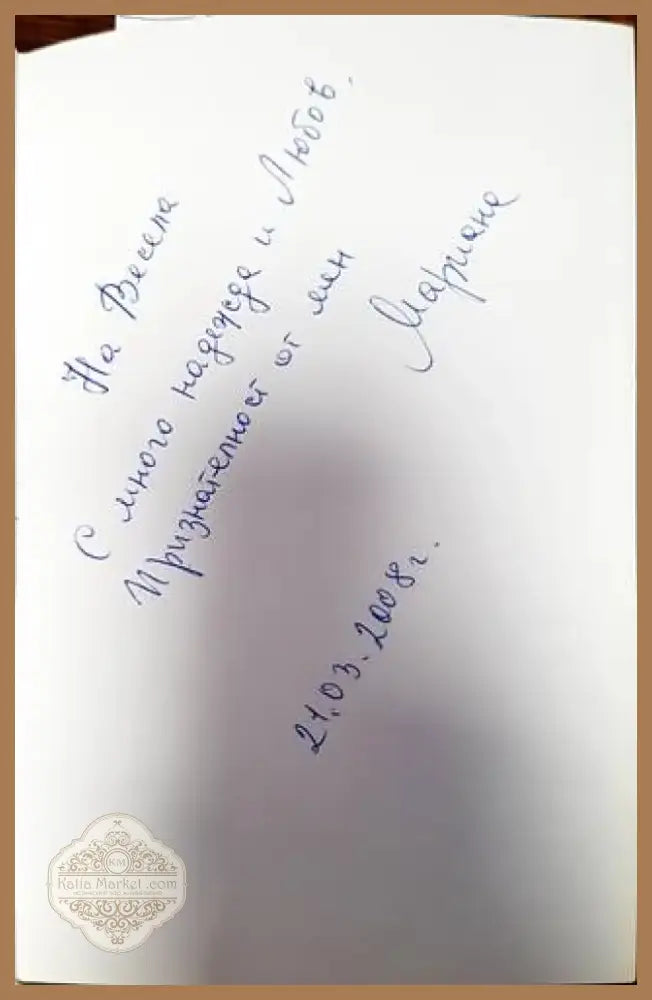 На Весела
С много надежда и Любов.
Признателност от мен
Мариана
21.03.2008г.
KM
Kalia Market .com